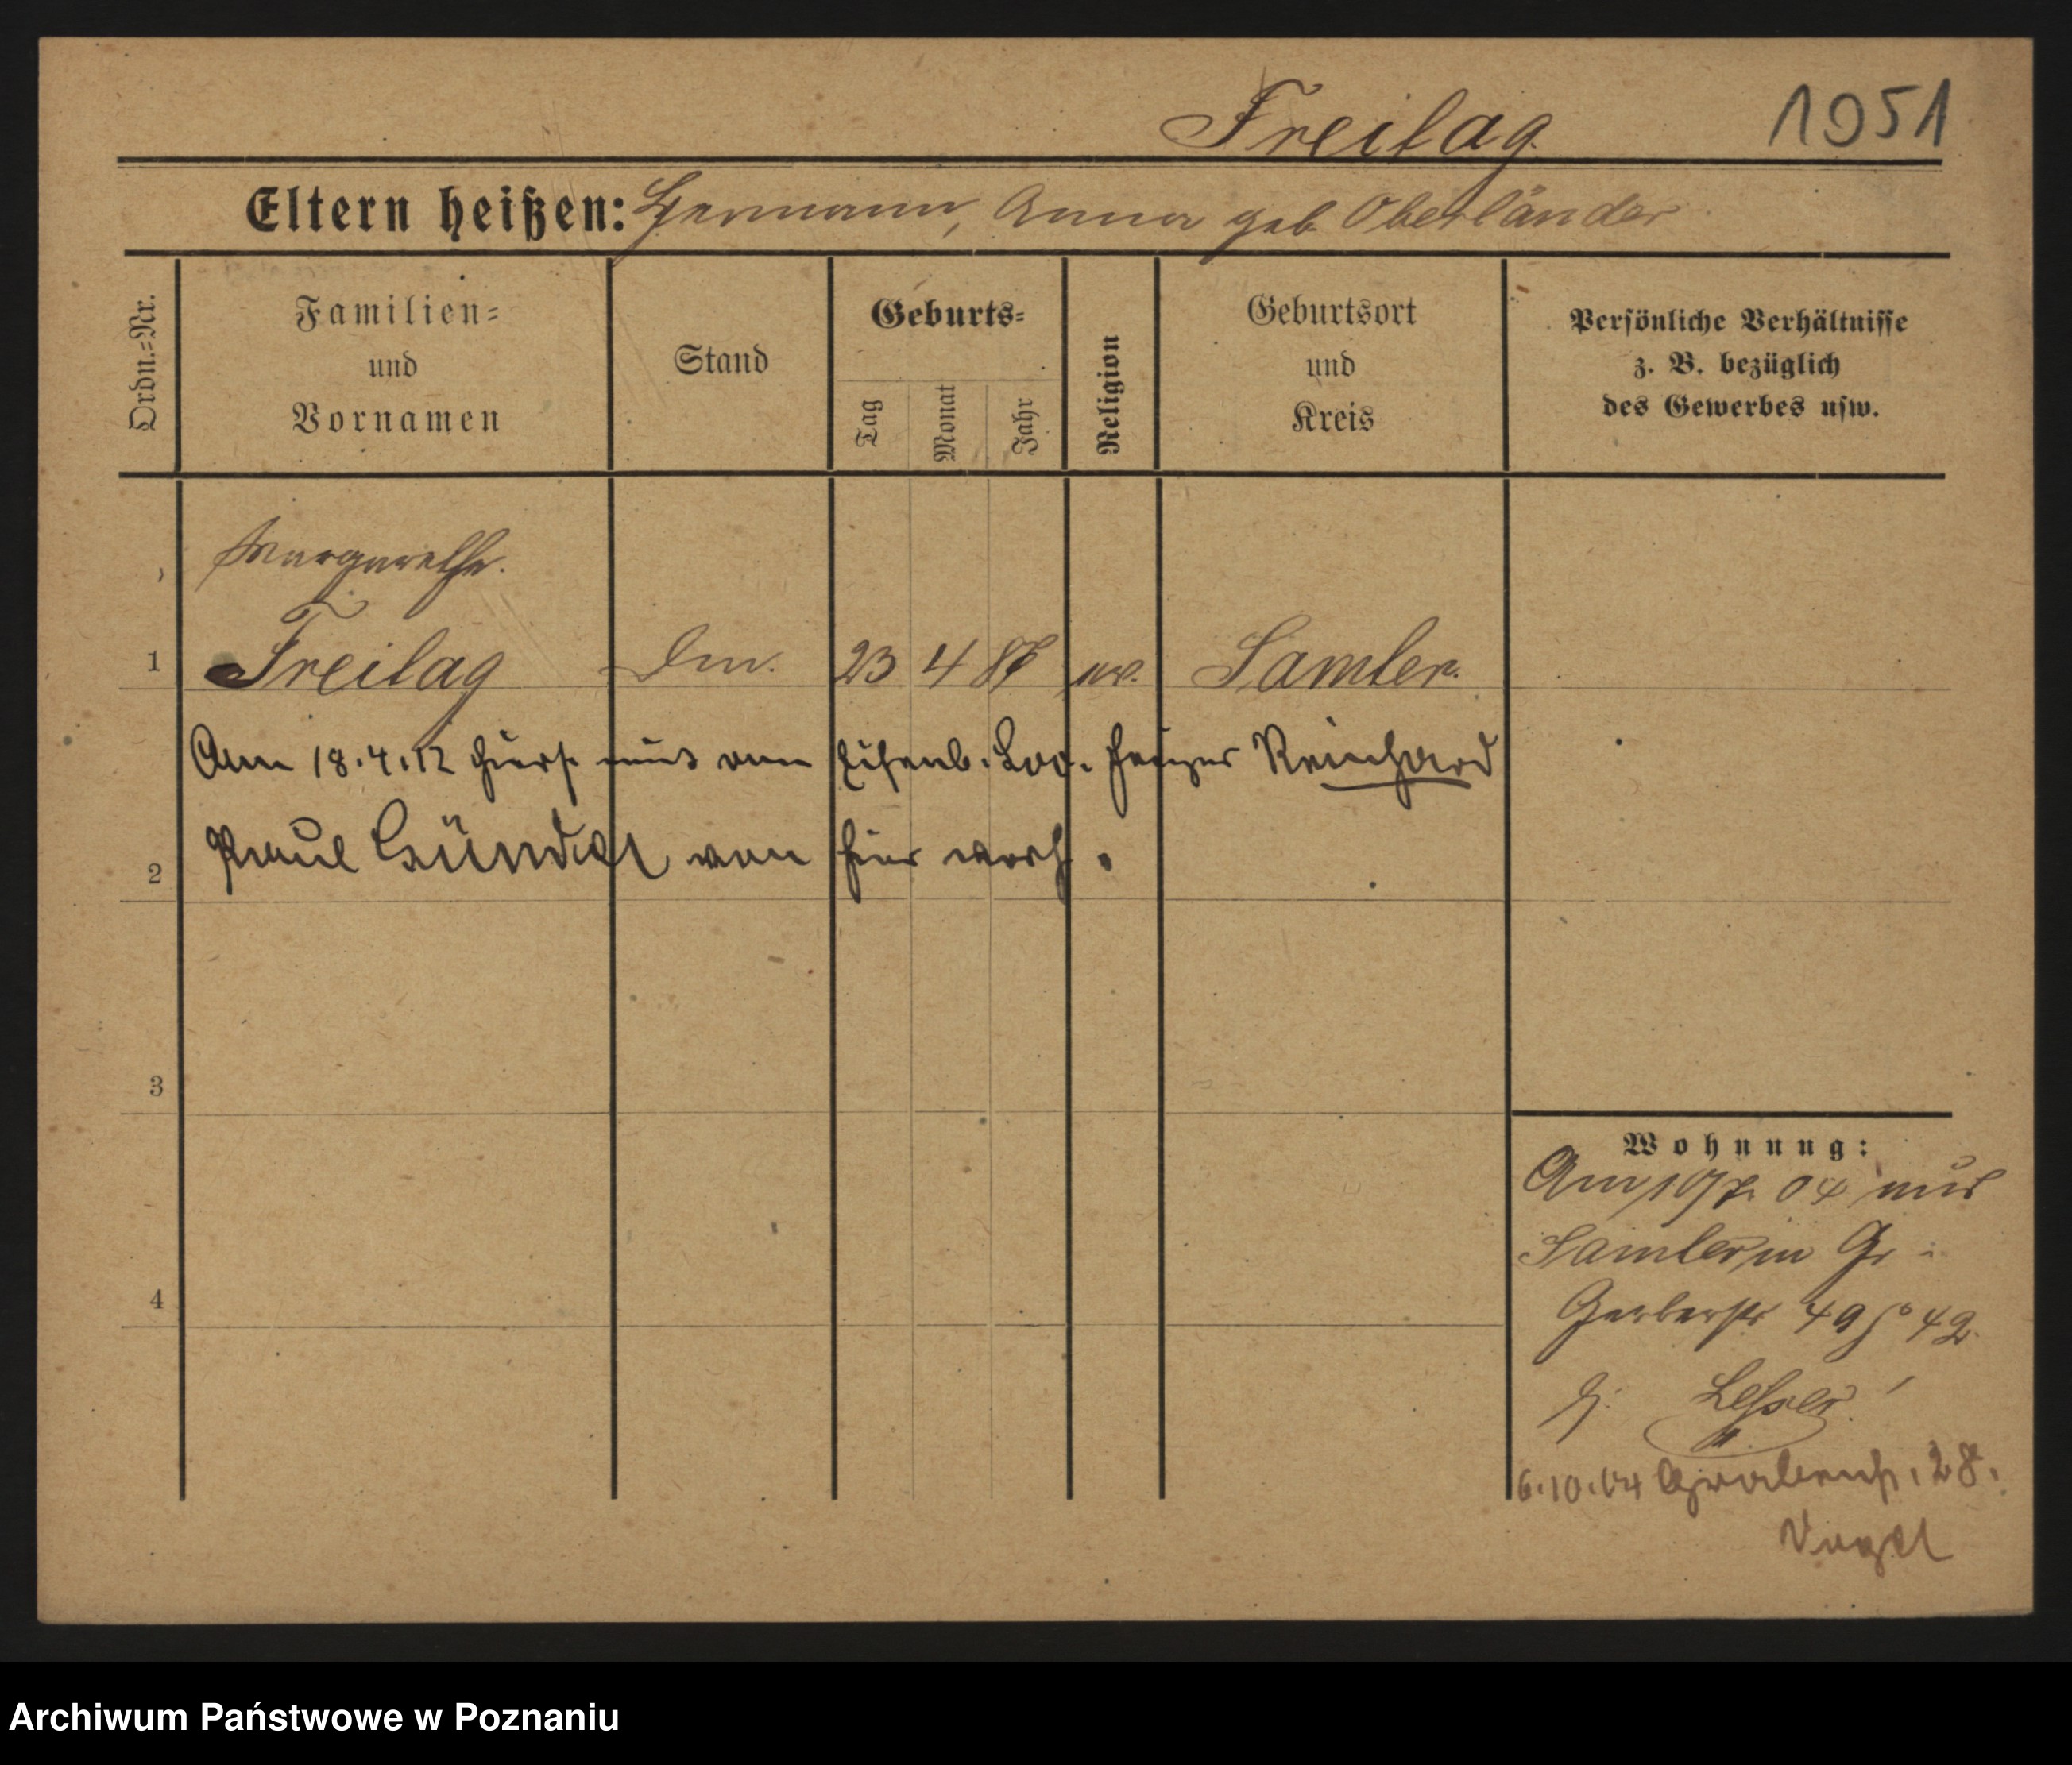 Freitag 1051
Eltern heißen: Hermann, Anna geb. Oberländer
Ordn.=Nr. Familien= und Vornamen Stand Geburts= Tag Monat Jahr Religion Geburtsort und Kreis Persönliche Verhältnisse z. B. bezüglich des Gewerbes usw.
Margarethe.
1 Freitag 23 4 86 ev. Samter.
Am 18.4.12 hierf. mit dem Eisenb. Lok. Heizer Reinhard
2 Paul Gündel von hier verh.
3
4
Wohnung:
Am 1/7. 04 aus
Samter in Gr.
Gerberstr 49 42
b. Lesser
6.10.04 Grabenstr. 28.
Vogel
Archiwum Państwowe w Poznaniu